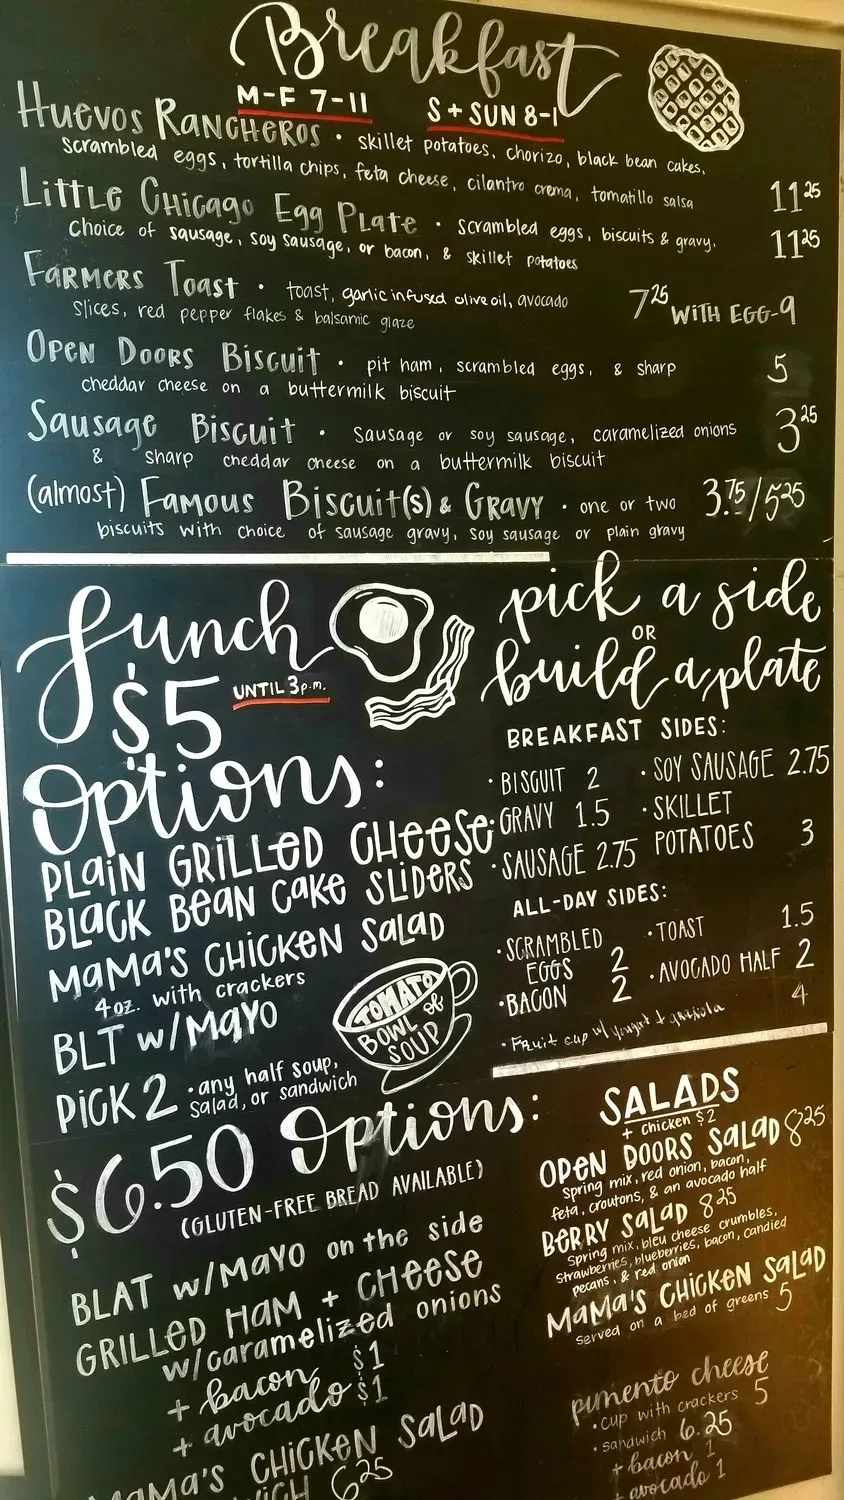 Breakfast
M-F 7-11 S + SUN 8-1
HUEVOS RANCHEROS • skillet potatoes, chorizo, black bean cakes,
scrambled eggs, tortilla chips, feta cheese, cilantro crema, tomatillo salsa 11.25
LITTLE CHICAGO EGG PLATE • scrambled eggs, biscuits & gravy,
choice of sausage, soy sausage, or bacon, & skillet potatoes 11.25
FARMERS TOAST • toast, garlic infused olive oil, avocado 7.25 WITH EGG-9
slices, red pepper flakes & balsamic glaze
OPEN DOORS BISCUIT • pit ham, scrambled eggs, & sharp 5
cheddar cheese on a buttermilk biscuit
Sausage BISCUIT • Sausage or soy sausage, caramelized onions 3.25
& sharp cheddar cheese on a buttermilk biscuit
(almost) FAMOUS BISCUIT(s) & GRAVY • one or two 3.75/5.25
biscuits with choice of sausage gravy, soy sausage or plain gravy
Lunch
UNTIL 3p.m.
$5
Options:
PLAIN GRILLED CHEESE
BLACK BEAN CAKE SLIDERS
MAMA'S CHICKEN SALAD
4oz. with crackers
BLT w/MAYO
PICK 2 • any half soup,
salad, or sandwich
TOMATO
BOWL of
SOUP
pick a side
OR
build a plate
BREAKFAST SIDES:
• BISCUIT 2
• GRAVY 1.5
• SAUSAGE 2.75
• SOY SAUSAGE 2.75
• SKILLET
POTATOES 3
ALL-DAY SIDES:
• SCRAMBLED
EGGS 2
• BACON 2
• TOAST 1.5
• AVOCADO HALF 2
• Fruit cup w/ yogurt + granola 4
$6.50 Options:
(GLUTEN-FREE BREAD AVAILABLE)
BLAT w/MAYO on the side
GRILLED HAM + CHEESE
w/caramelized onions
+ bacon $1
+ avocado $1
MAMA'S CHICKEN SALAD
6.25
SALADS
+ chicken $2
OPEN DOORS SALAD 8.25
Spring mix, red onion, bacon,
feta, croutons, & an avocado half
BERRY SALAD 8.25
Spring mix, bleu cheese crumbles,
strawberries, blueberries, bacon, candied
pecans, & red onion
MAMA'S CHICKEN SALAD
served on a bed of greens 5
pimento cheese
• cup with crackers 5
• sandwich 6.25
+ bacon 1
+ avocado 1